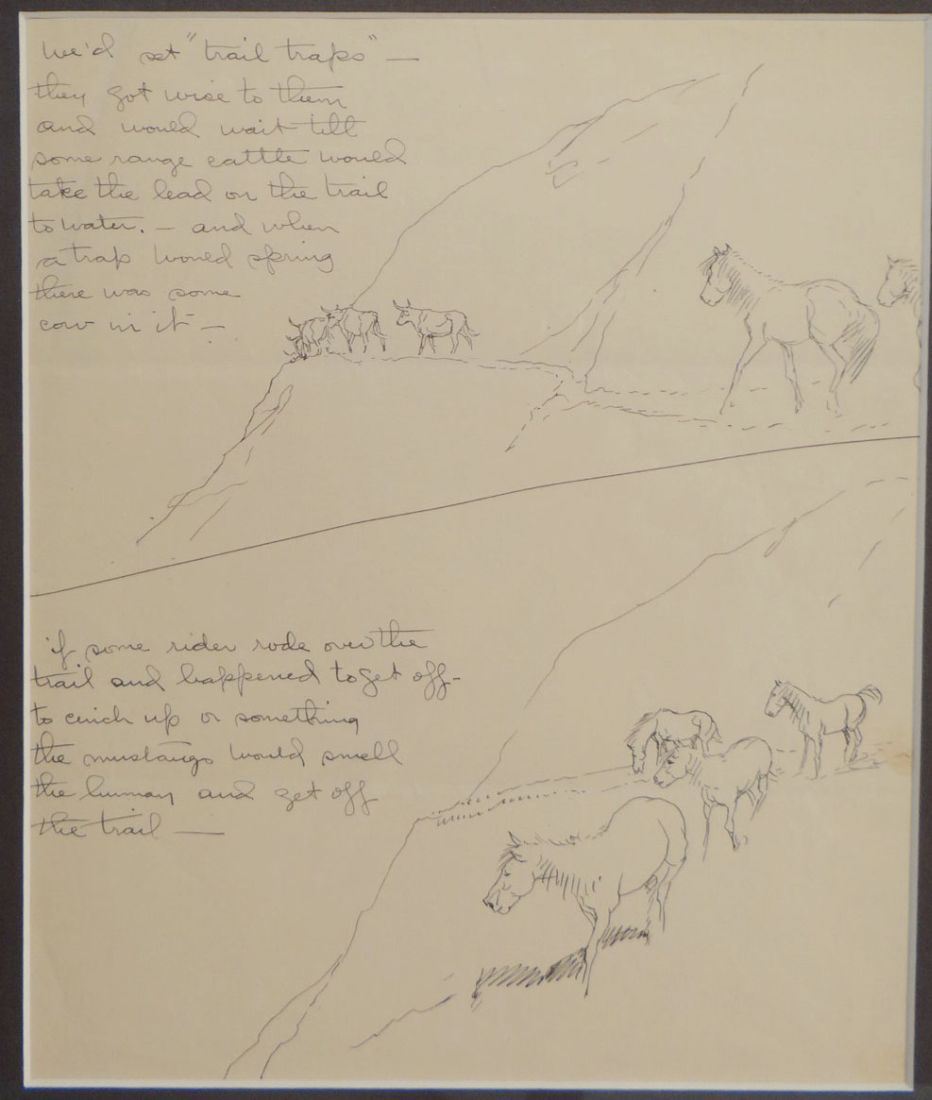 we'd set "trail traps" —
they got wise to them
and would wait till
some range cattle would
take the lead on the trail
to water. — and when
a trap would spring
there was some
cow in it —
if some rider rode over the
trail and happened to get off-
to cinch up or something
the mustangs would smell
the human and get off
the trail —